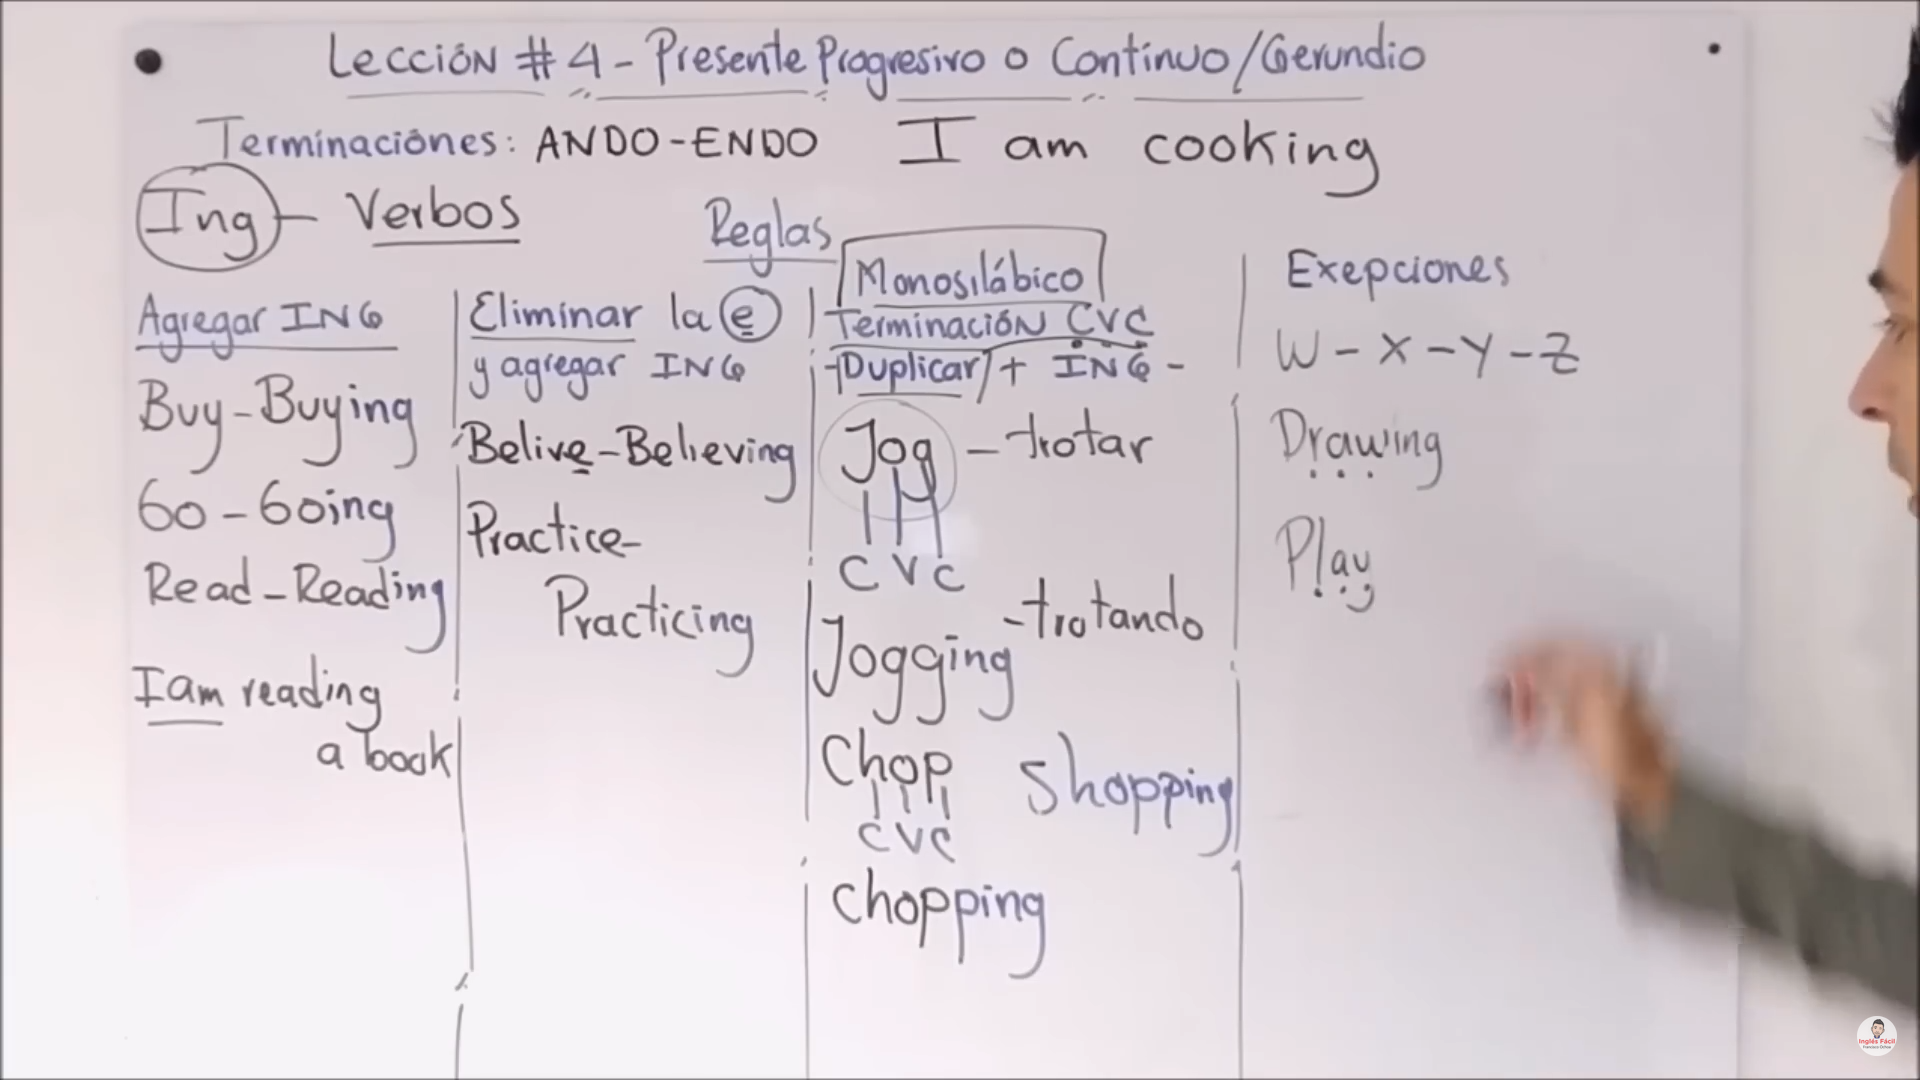 Lección #4 - Presente Progresivo o Contínuo/Gerundio
Terminaciónes: ANDO-ENDO I am cooking
Ing - Verbos
Reglas
Agregar ING
Buy-Buying
Go-Going
Read-Reading
I am reading
a book
Eliminar la e
y agregar ING
Belive-Believing
Practice-
Practicing
Monosilábico
Terminación CVC
Duplicar + ING -
Jog - trotar
C V C
Jogging - trotando
Chop Shopping
C V C
Chopping
Exepciones
W - X - Y - Z
Drawing
Play
Inglés Fácil